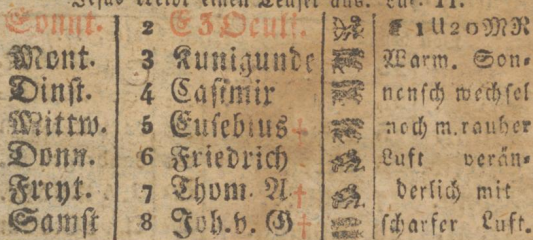 Jesus treibt einen Teufel aus. Luc. 11.
Sonnt. 2 E 3 Oculi. ☾ 1 U 20 M R
Mont. 3 Kunigunde Warm. Son-
Dinst. 4 Casimir nensch wechsel
Mittw. 5 Eusebius † noch m. rauher
Donn. 6 Friedrich Luft verän-
Freyt. 7 Thom. A † derlich mit
Samst 8 Joh. v. G † scharfer Luft.